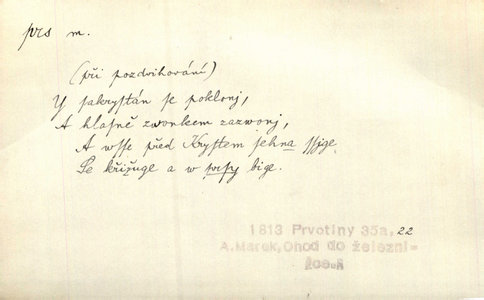 prs m.
(při pozdvihování)
Y sakrystán se poklonj,
A hlasně zwonkem zazwonj,
A wsse před Krystem sehna ssige
Se křižuge a w prsy bige.
1813 Prvotiny 35a, 22
A. Marek, Ohod do železni=